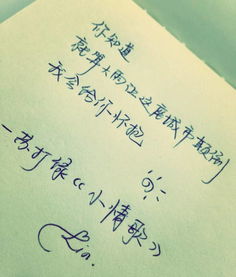 你知道
就算大雨让这座城市颠倒
我会给你怀抱
—苏打绿《小情歌》
Lin.